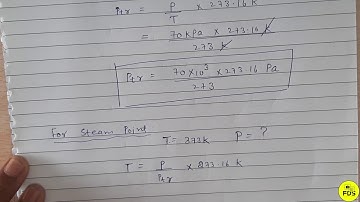 Ptr = P/T × 273.16 K
= 70 kPa × 273.16 K / 273 K
Ptr = 70×10³ × 273.16 Pa / 273
For Steam Point
T = 373K P = ?
T = P/Ptr × 273.16 K
FDS